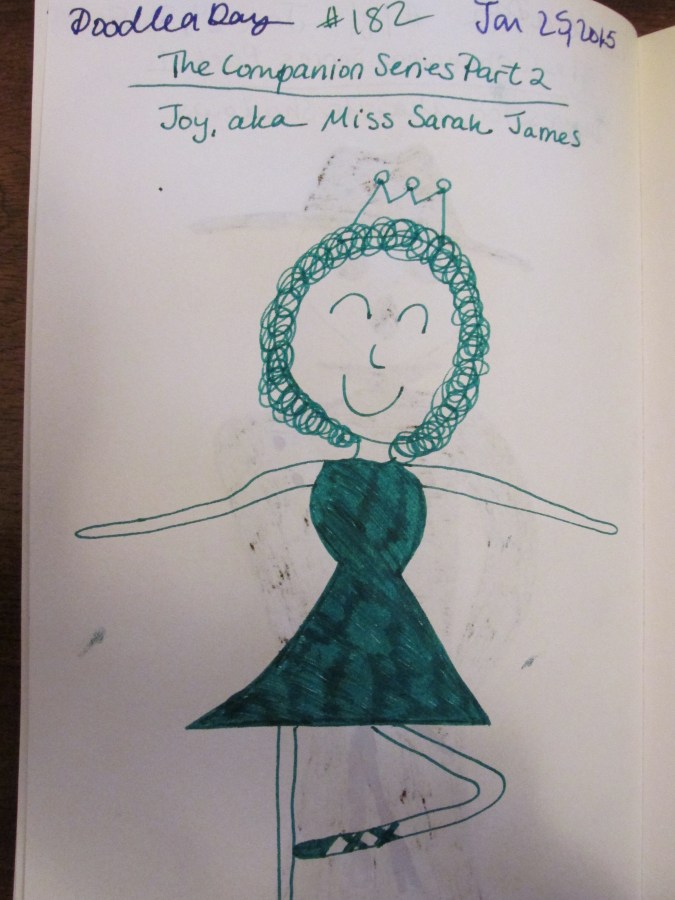 Doodle a Day #182 Jan 25, 2015
The Companion Series Part 2
Joy, aka Miss Sarah James